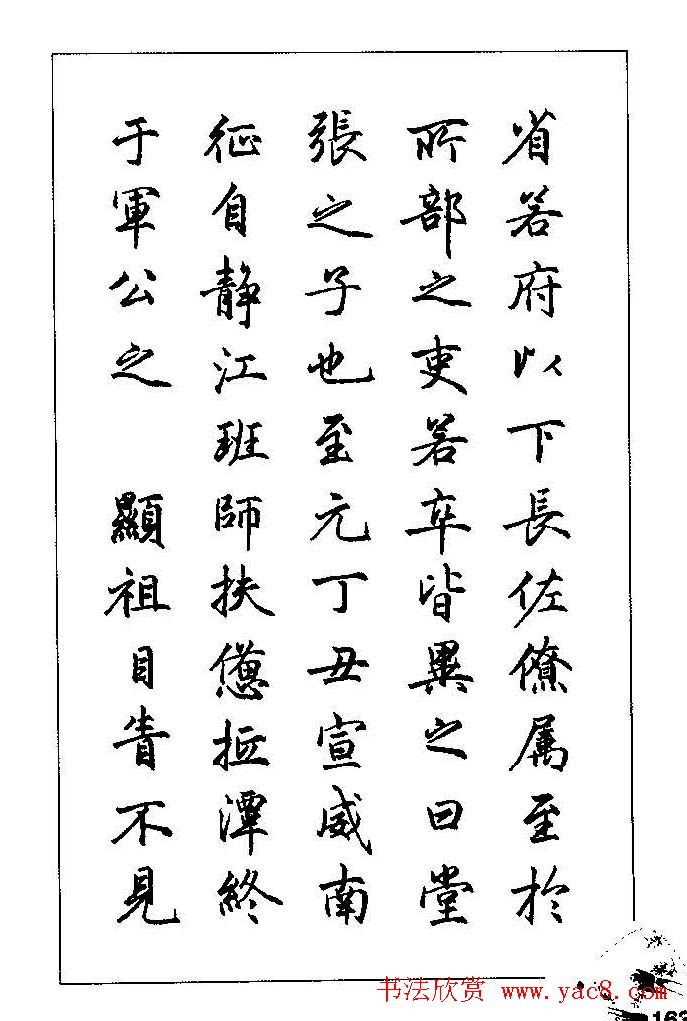 省若府以下長佐僚属至於
所部之吏若卒皆異之曰堂
張之子也至元丁丑宣威南
征自静江班師扶憊抵潭終
于軍公之 顯祖目眚不見
书法欣赏 www.yac8.com